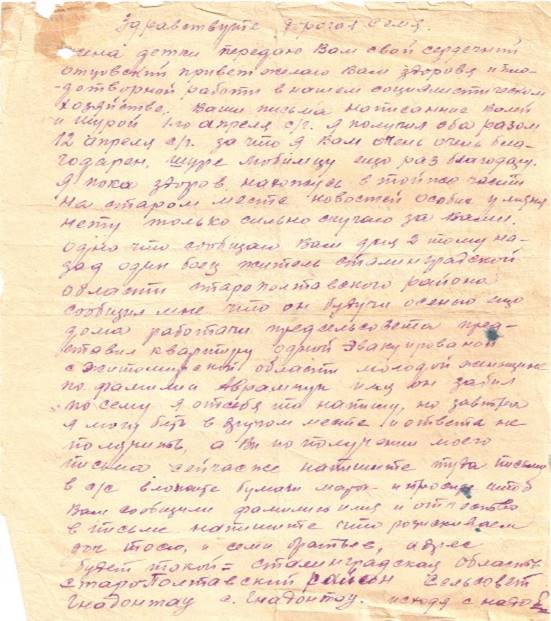 Здравствуйте дорогая семя.
жена детки передаю Вам свой сердечний
отцовский привет желаю Вам здоровя и пло-
дотворной работи в нашем социалистическом
хозяйстве. Ваши письма написанние Валей
и Шурой 1-го апреля с/г. я получил оба разом
12 апреля с/г. за что я Вам очень очень бла-
годарен. Шуре любимцу ещо раз благодару.
Я пока здоров нахожусь в той же части
на старом месте новостей особих у меня
нету только сильно скучаю за Вами.
одно что сообщаю Вам дня 2 тому на-
зад один боец житель сталинградской
области старополтавского района
сообщил мне что он будучи осенью ещо
дома работачи предсельсовета пред-
ставил квартиру одной эвакуированой
с Житомирской области молодой женщине
по фамилии Авраамчук имя он забил
по сему я от себя то напишу, но завтра
я могу бить в другом месте и ответа не
получить, а Ви по получении моего
письма сейчас же напишите туда письмо
в с/с вложите бумаги марок и просите чтоб
Вам сообщили фамилию имя и отчество
в письме напишите что розискиваем
дочь Тосю, и семи братьев, адрес
будет такой = сталинградская область
старополтавский район сельсовет
Гнадонтау с. Гнадонтау. исходя с надоб